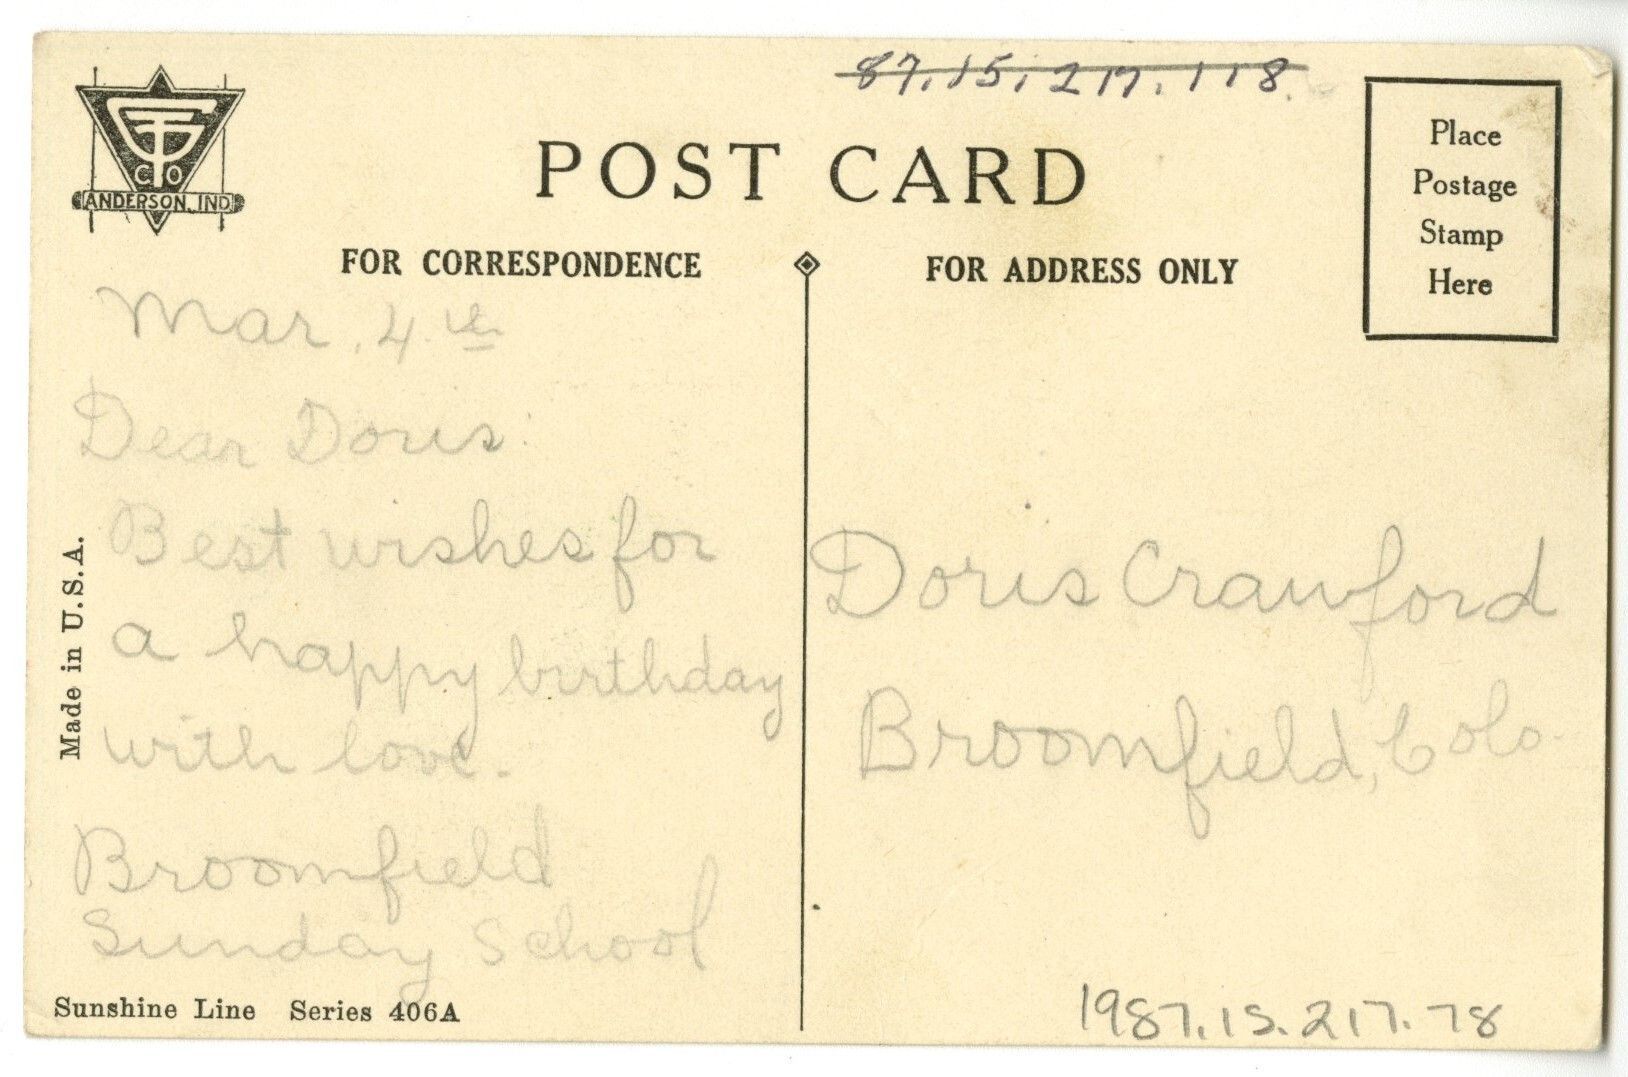 87.15.217.118
POST CARD
GTCO
ANDERSON, IND.
Place
Postage
Stamp
Here
FOR CORRESPONDENCE
FOR ADDRESS ONLY
Mar. 4th
Dear Doris:
Best wishes for
a happy birthday
with love.
Broomfield
Sunday School
Made in U.S.A.
Sunshine Line Series 406A
Doris Crawford
Broomfield, Colo.
1987.15.217.78